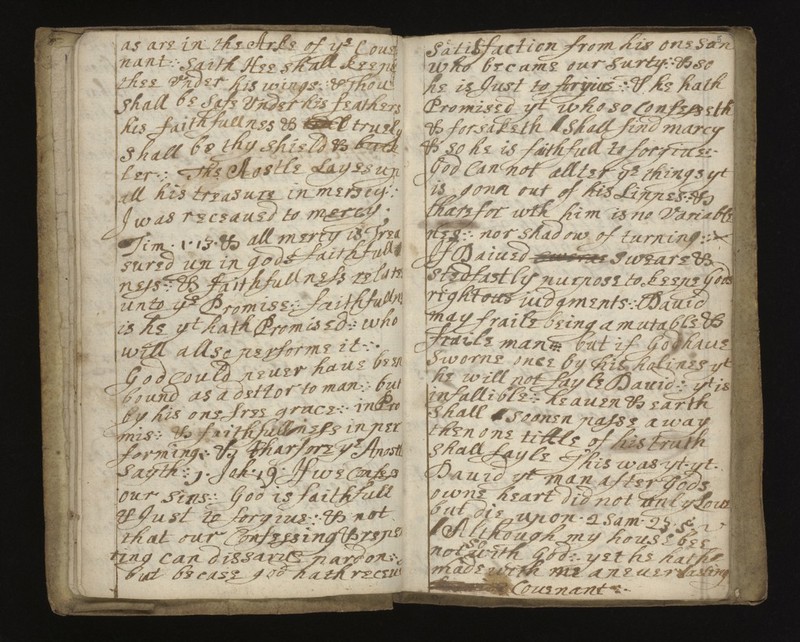 as are in the Arke of yᵉ Coue
nant: saith Hee shall keepe
thee vnder his wings: & thou
shall be safe vnder his feathers
his faithfullnes & truely
shall be thy shield & buck
ler: The Apostle Layes up
all his treasure in mersiy:
I was receaued to mercy.
Tim. 1. 13 & all mercy is Trea
sured up in gods faithfull
ness: & faithfullness relate
unto yᵉ Promise: faithfulln
is he yt hath Promised: who
will allso performe it:
God could never haue been
bound as a dettor to man: but
by his one free grace: in Pro
mis: & faithfullness in per
forming: & tharfore yᵉ Apostl
sayth: 1. Joh: 1 9: If we Confess
our sins: God is faithfull
& Just to forgiue: & not
that our Confessing & repen
ting can dissarue pardon:
but be case god hath receiu
5
satisfaction from his one son
who became our surty: & so
he is Just to forgiue: & he hath
Promised yt who so Confesseth
& forsaketh shall find marcy
& so he is faithfull to forgiue:
God Can not allter yᵉ things yt
is gonn out of his Lippes: &
tharefor wth him is no Variable
nes: nor shadow of turning:
If Dauied sweare &
stedfastly purpose to keepe gods
rightous iudgments: Dauid
may fraile being a mutable &
fraile man but if God haue
sworne once by his holines yt
he will not fayle Dauid: yt is
infallible: heauen & earth
shall sooner passe away
then one tittle of his truth
shall fayle This was yt yt
Dauid yt man after gods
owne heart did not only Loue
but die upon 2 Sam. 23. 5
Although my house bee
not so with God: yet he hath
made with me an euerlasting
Couenant: